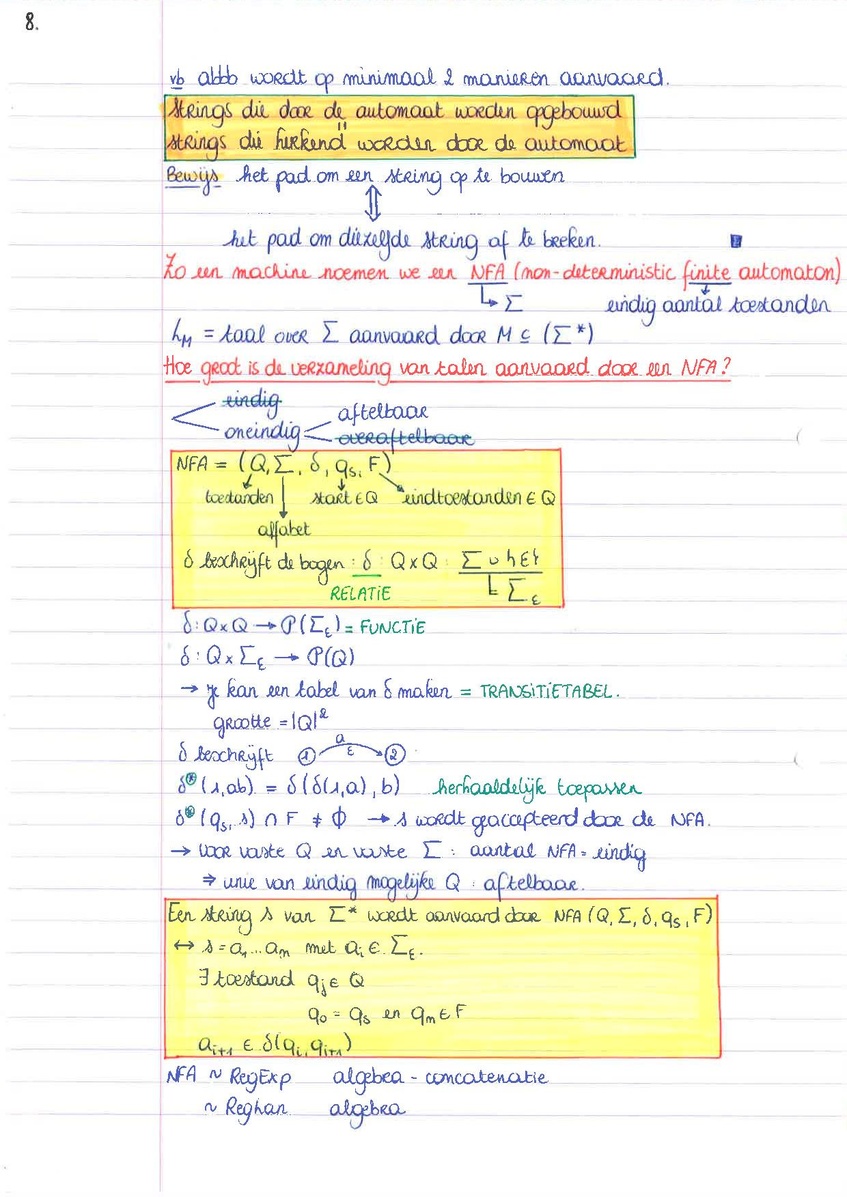 8.
vb abbb wordt op minimaal 2 manieren aanvaard.
strings die door de automaat worden opgebouwd
"
strings die herkend worden door de automaat
Bewijs het pad om een string op te bouwen
⇕
het pad om diezelfde string af te breken.
Zo een machine noemen we een NFA (non-deterministic finite automaton)
↳ Σ eindig aantal toestanden
L_M = taal over Σ aanvaard door M ⊆ (Σ*)
Hoe groot is de verzameling van talen aanvaard door een NFA?
eindig
aftelbaar
oneindig
overaftelbaar
NFA = (Q, Σ, δ, q_s, F)
toestanden start ∈ Q eindtoestanden ∈ Q
alfabet
δ beschrijft de bogen : δ : Q x Q : Σ ∪ {ε}
RELATIE ↳ Σ_ε
δ : Q x Q → P(Σ_ε) = FUNCTIE
δ : Q x Σ_ε → P(Q)
→ je kan een tabel van δ maken = TRANSITIETABEL.
grootte = |Q|²
δ beschrijft 1 a ε 2
δ* (1, ab) = δ(δ(1,a), b) herhaaldelijk toepassen
δ* (q_s, s) ∩ F ≠ Φ → s wordt geaccepteerd door de NFA.
→ voor vaste Q en vaste Σ : aantal NFA = eindig
⇒ unie van eindig mogelijke Q : aftelbaar.
Een string s van Σ* wordt aanvaard door NFA (Q, Σ, δ, q_s, F)
↔ s = a_1 ... a_m met a_i ∈ Σ_ε.
∃ toestand q_j ∈ Q
q_0 = q_s en q_m ∈ F
a_{i+1} ∈ δ(q_i, q_{i+1})
NFA ~ RegExp algebra - concatenatie
~ Reghan algebra